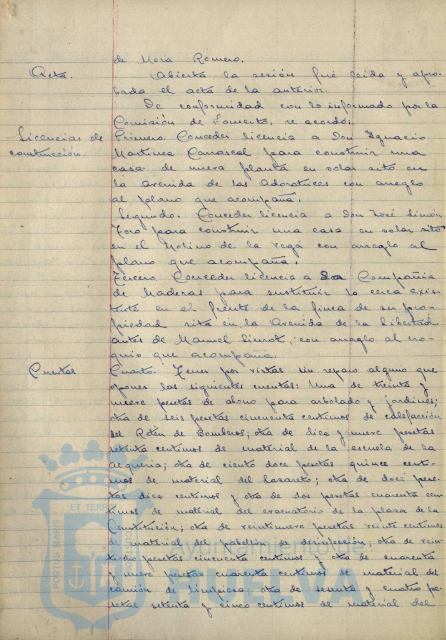 de Mora Romero.
Acta. Abierta la sesión fué leida y apro-
bada el acta de la anterior.
De conformidad con lo informado por la
Comisión de Fomento, se acordó:
Licencias de construcción. Primero. Conceder licencia a Don Ignacio
Martinez Carrascal para construir una
casa de nueva planta en solar sito en
la Avenida de las Adoratrices con arreglo
al plano que acompaña.
Segundo. Conceder licencia a Don José Limón
Toro para construir una casa en solar sito
en el Molino de la Vega con arreglo al
plano que acompaña.
Tercero. Conceder licencia a la Compañia
de Maderas para sustituir la cerca exis-
tente en el frente de la finca de su pro-
piedad sita en la Avenida de la libertad
antes de Manuel Siurot, con arreglo al cro-
quis que acompaña.
Cuentas Cuarto. Tener por vistas sin reparo alguno que
oponer las siguientes cuentas: Una de treinta y
nueve pesetas de abono para arbolado y jardines;
otra de seis pesetas cincuenta centimos de calefacción
del Reten de Bomberos; otra de diez y nueve pesetas
setenta centimos de material de la escuela de la
; otra de ciento doce pesetas quince centi-
mos de material del ; otra de doce pese-
tas diez centimos y otra de dos pesetas cuarenta cen-
timos de material del evacuatorio de la plaza de la
Constitución; otra de veintinueve pesetas veinte centimos
de material del pabellón de desinfección; otra de vein-
tiocho pesetas cincuenta centimos y otra de cuarenta
y nueve pesetas cuarenta centimos de material del
camión de limpieza; otra de setenta y cuatro pe-
setas setenta y cinco centimos de material del